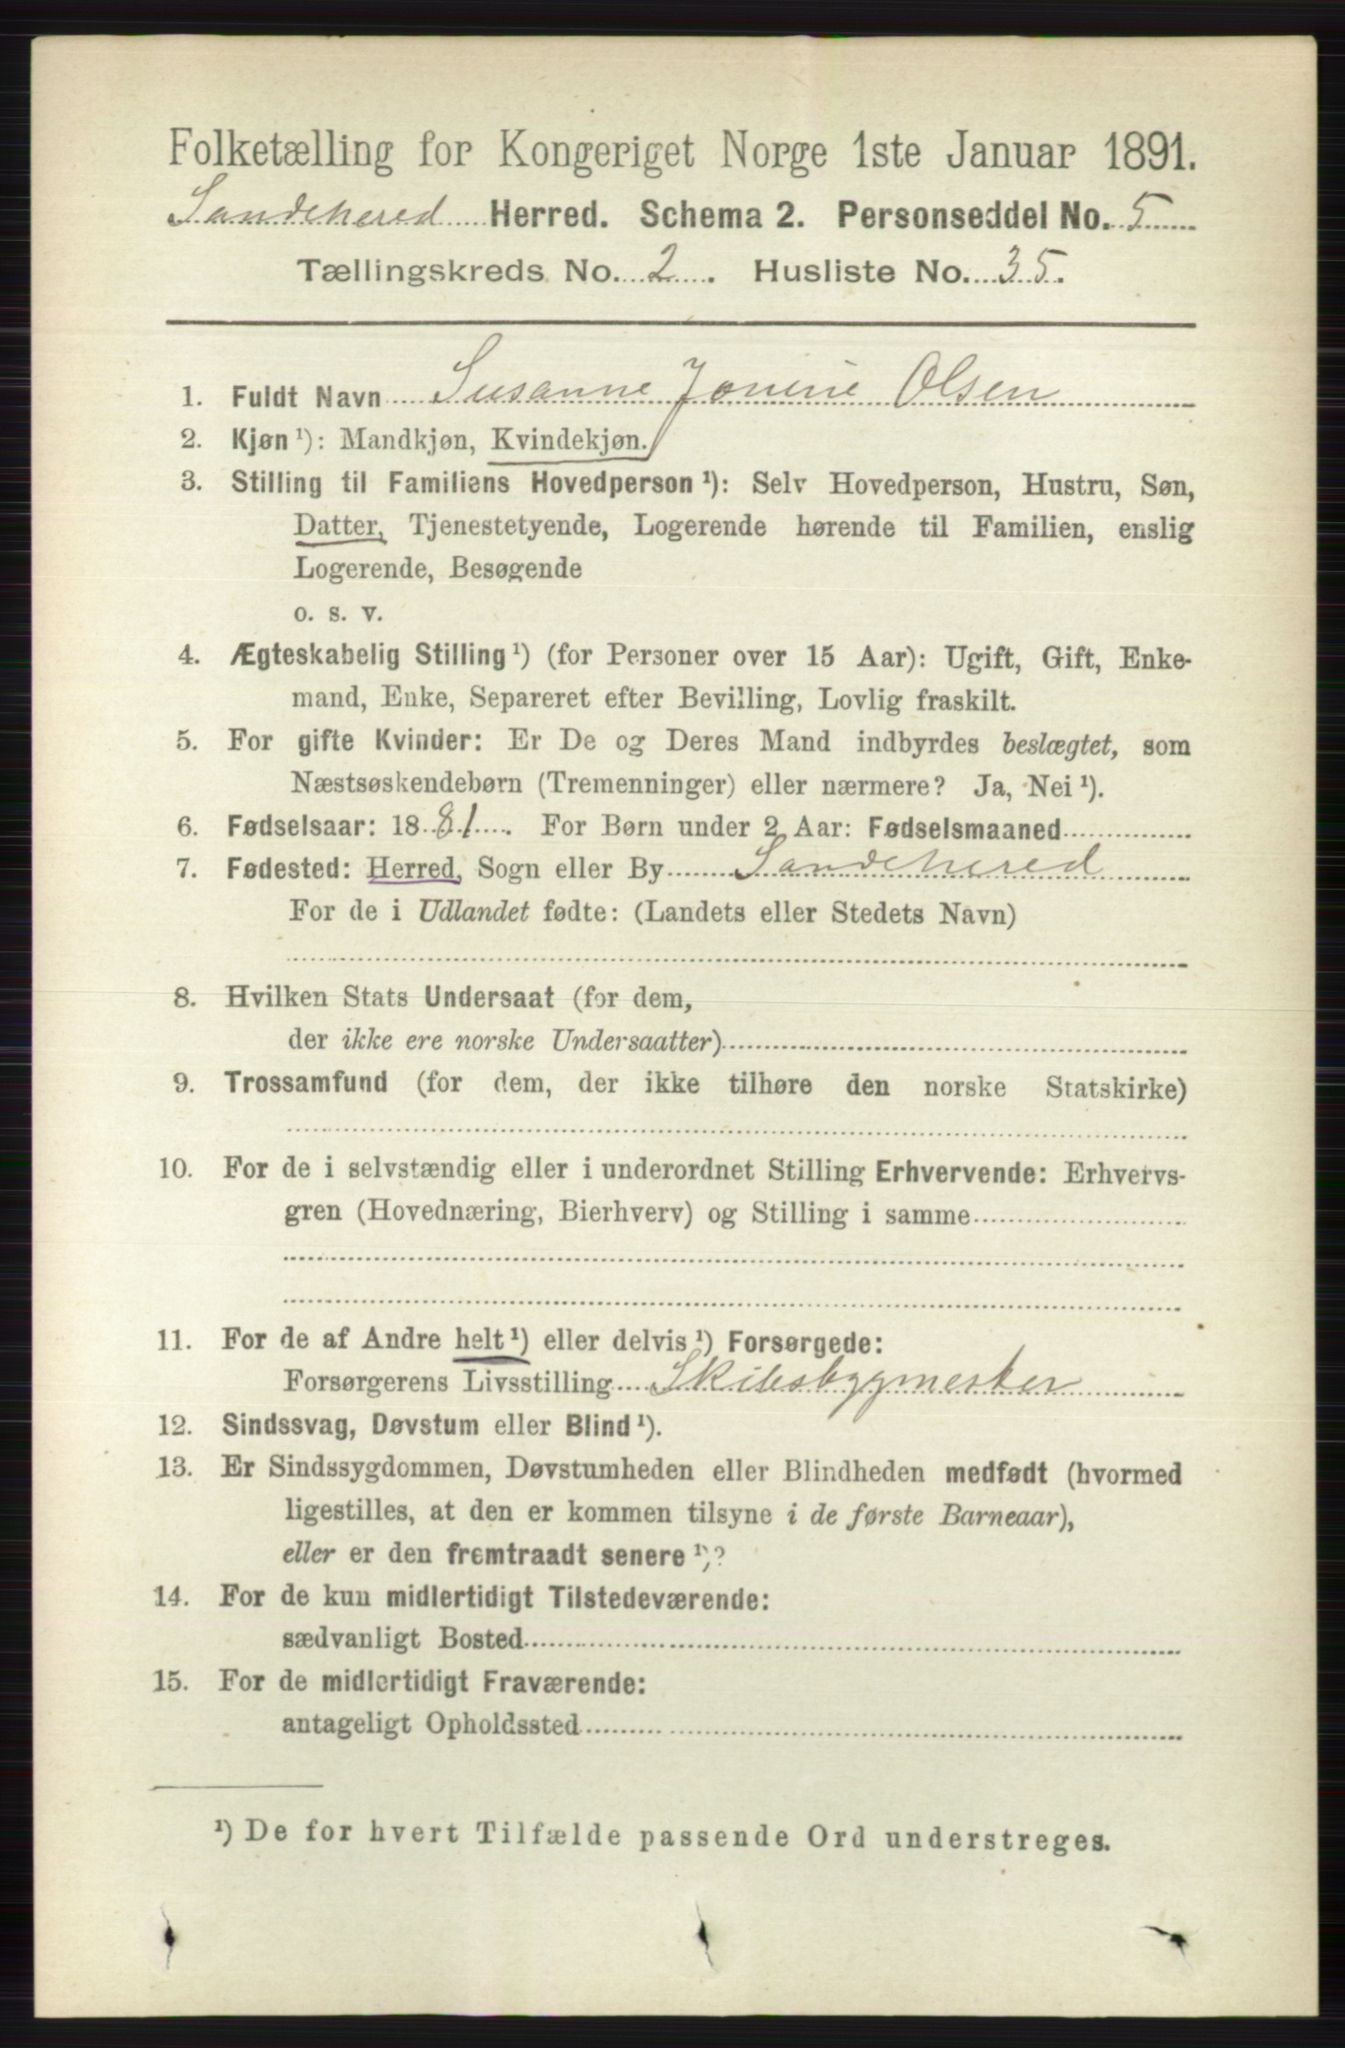 Folketælling for Kongeriget Norge 1ste Januar 1891.
Sandehered Herred. Schema 2. Personseddel No. 5
Tællingskreds No. 2. Husliste No. 35.
1. Fuldt Navn Susanne Jonine Olsen
2. Kjøn ¹): Mandkjøn, Kvindekjøn.
3. Stilling til Familiens Hovedperson ¹): Selv Hovedperson, Hustru, Søn,
Datter, Tjenestetyende, Logerende hørende til Familien, enslig
Logerende, Besøgende
o. s. v.
4. Ægteskabelig Stilling ¹) (for Personer over 15 Aar): Ugift, Gift, Enke-
mand, Enke, Separeret efter Bevilling, Lovlig fraskilt.
5. For gifte Kvinder: Er De og Deres Mand indbyrdes beslægtet, som
Næstsøskendebørn (Tremenninger) eller nærmere? Ja, Nei ¹).
6. Fødselsaar: 1881. For Børn under 2 Aar: Fødselsmaaned
7. Fødested: Herred, Sogn eller By Sandehered
For de i Udlandet fødte: (Landets eller Stedets Navn)
8. Hvilken Stats Undersaat (for dem,
der ikke ere norske Undersaatter)
9. Trossamfund (for dem, der ikke tilhøre den norske Statskirke)
10. For de i selvstændig eller i underordnet Stilling Erhvervende: Erhvervs-
gren (Hovednæring, Bierhverv) og Stilling i samme
11. For de af Andre helt ¹) eller delvis ¹) Forsørgede:
Forsørgerens Livsstilling Skibsbygmester
12. Sindssvag, Døvstum eller Blind ¹).
13. Er Sindssygdommen, Døvstumheden eller Blindheden medfødt (hvormed
ligestilles, at den er kommen tilsyne i de første Barneaar),
eller er den fremtraadt senere ¹)?
14. For de kun midlertidigt Tilstedeværende:
sædvanligt Bosted
15. For de midlertidigt Fraværende:
antageligt Opholdssted
¹) De for hvert Tilfælde passende Ord understreges.